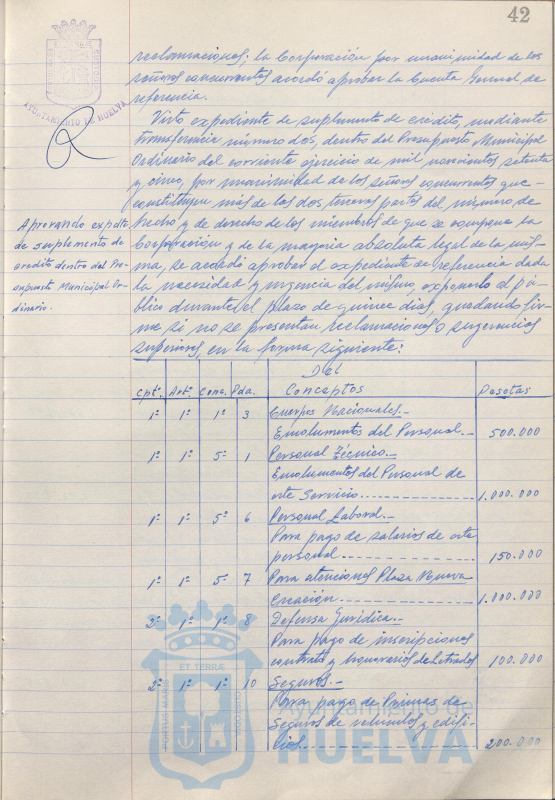 42
AYUNTAMIENTO DE HUELVA
reclamaciones; la Corporación por unanimidad de los
señores concurrentes acordó aprobar la Cuenta General de
referencia.
Visto expediente de suplemento de crédito, mediante
transferencia número dos, dentro del Presupuesto Municipal
Ordinario del corriente ejercicio de mil novecientos setenta
y cinco, por unanimidad de los señores concurrentes que
constituyen más de las dos terceras partes del número de
hecho y de derecho de los miembros de que se compone la
Corporación y de la mayoría absoluta legal de la mis-
ma, se acordó aprobar el expediente de referencia dada
la necesidad y urgencia del mismo, exponerlo al pú-
blico durante el plazo de quince días, quedando fir-
me si no se presentan reclamaciones o sugerencias
superiores, en la forma siguiente:
Aprovando expdte
de suplemento de
credito dentro del Pre-
supuesto Municipal Or-
dinario.
Del
Cptº. Artº. Conc. Pda. Conceptos Pesetas
1º 1º 1º 3 Cuerpos Nacionales.-
Emolumentos del Personal.- 500.000
1º 1º 5º 1 Personal Técnico.-
Emolumentos del Personal de
este Servicio 1.000.000
1º 1º 5º 6 Personal Laboral.-
Para pago de salarios de este
personal 150.000
1º 1º 5º 7 Para atenciones Plaza Nueva
Creación 1.000.000
2º 1º 1º 8 Defensa Jurídica.-
Para pago de inscripciones
contrato y honorarios de Letrados 100.000
2º 1º 1º 10 Seguros.-
Para pago de Primas de
Seguros de vehículos y edifi-
cios 200.000
PORTUS MARIS ET TERRÆ CUSTODIA
Ayuntamiento de
HUELVA